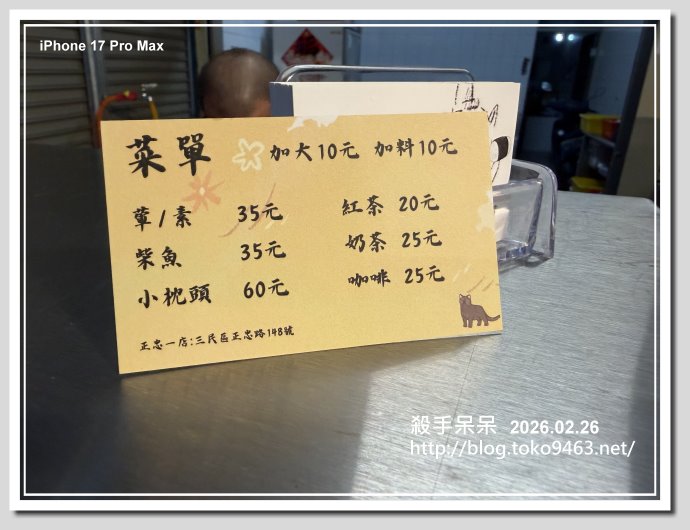 iPhone 17 Pro Max
菜單 加大10元 加料10元
葷/素 35元 紅茶 20元
柴魚 35元 奶茶 25元
小枕頭 60元 咖啡 25元
正忠一店:三民區正忠路148號
殺手呆呆 2026.02.26
http://blog.toko9463.net/